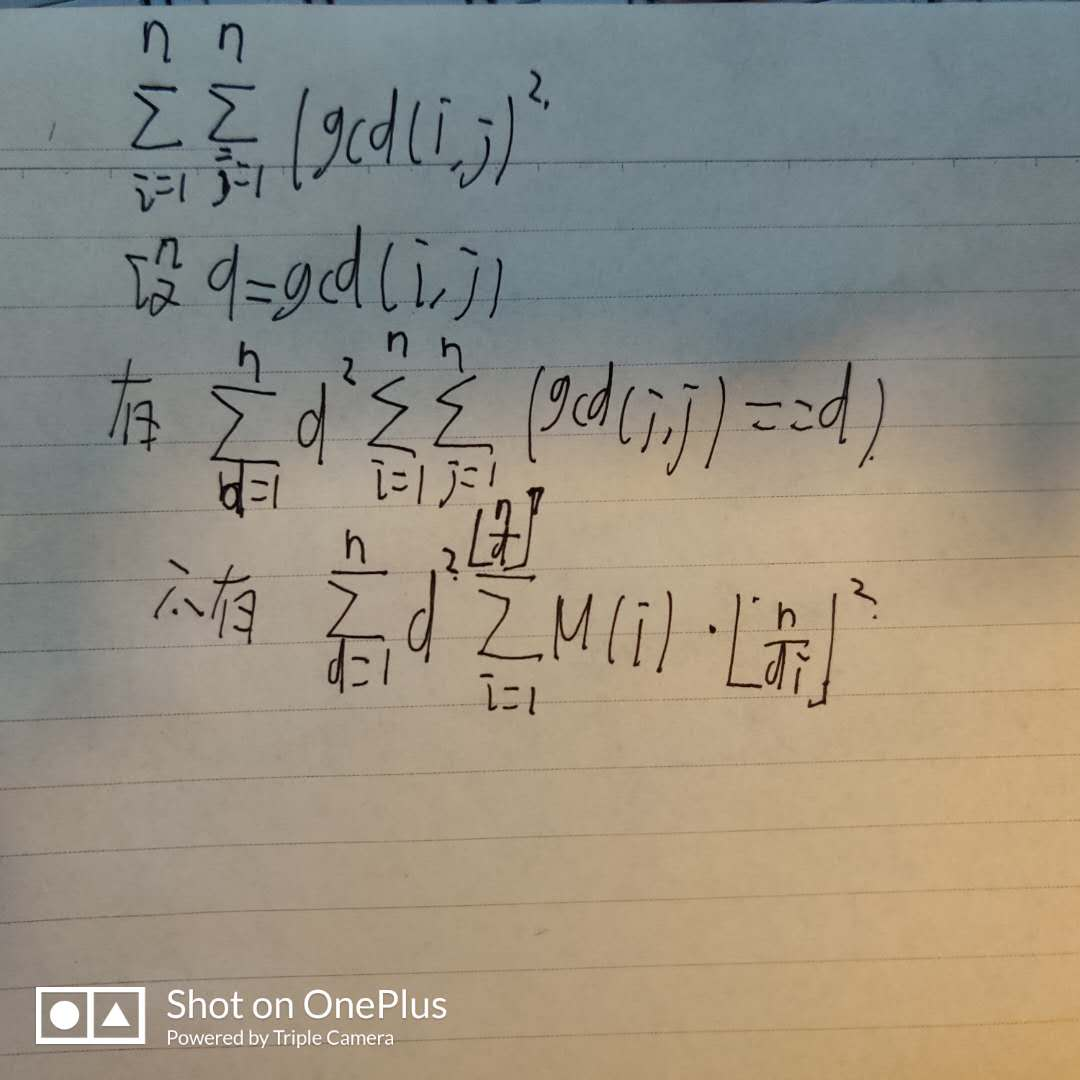 ∑_{i=1}^{n} ∑_{j=1}^{n} (gcd(i,j)^2
d=gcd(i,j)
有 ∑_{d=1}^{n} d^2 ∑_{i=1}^{n} ∑_{j=1}^{n} (gcd(i,j)==d)
有 ∑_{d=1}^{n} d^2 ∑_{i=1}^{⌊n/d⌋} M(i)·⌊n/di⌋^2
Shot on OnePlus
Powered by Triple Camera